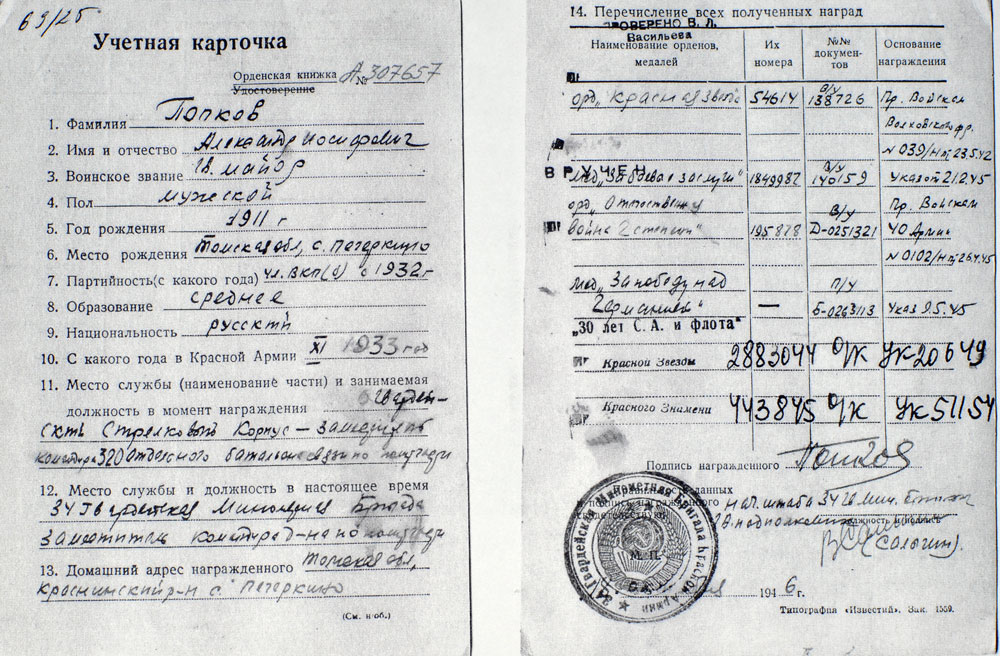 69/25
Учетная карточка
Орденская книжка № А 307657
Удостоверение
1. Фамилия Попков
2. Имя и отчество Александр Иосифович
3. Воинское звание Гв. майор
4. Пол мужской
5. Год рождения 1911 г
6. Место рождения Томская обл, с. Петеркино
7. Партийность (с какого года) чл. ВКП(б) с 1932 г
8. Образование среднее
9. Национальность русский
10. С какого года в Красной Армии XI 1933 год
11. Место службы (наименование части) и занимаемая
должность в момент награждения 6 Гвардей-
ский Стрелковый Корпус – Заместитель
командира 320 Отдельного батальона связи по политчасти
12. Место службы и должность в настоящее время
34 Гвардейская Минометная Бригада
Заместитель командира д-на по политчасти
13. Домашний адрес награжденного Томская обл,
Краснинский р-н с. Петеркино
(См. н/об.)
14. Перечисление всех полученных наград
ПРОВЕРЕНО В. Л.
Васильева
Наименование орденов, медалей
Их номера
№№ документов
Основание награждения
орд „Красная звезда" 54614 в/у 138726 Пр. Войскам
Волховского фр.
N 039/н от 23.5.42
ВРУЧЕН
мед „За боевые заслуги" 1849982 в/у 140159 Указ от 21.2.45
орд „Отечествен. в/у Пр. Войскам
война 2 степени" 195878 Д-0251321 40 Армии
N 0102/н от 26.4.45
мед „За победу над п/у
Германией" — Б-0263113 Указ 9.5.45
„30 лет С. А. и флота"
Красной Звезды 2883044 О/К УК 20649
Красного Знамени 443845 О/К УК 51154
Подпись награжденного Попков
данных
и подпись награжденного нач. штаба 34 Гв. мин. бригады
свидетельствую: Гв. подполковник
должность и подпись
(Салогин).
34 Гвардейская Минометная Бригада Красной Армии
М. П.
1946 г.
Типография «Известий». Зак. 1559.